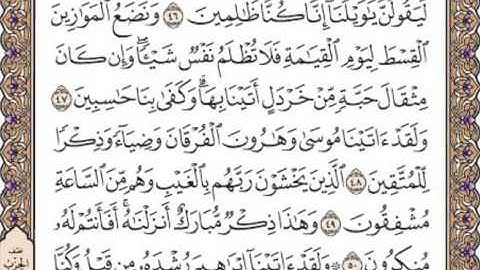 لَيَقُولُنَّ يَٰوَيْلَنَآ إِنَّا كُنَّا ظَٰلِمِينَ ٤٦ وَنَضَعُ ٱلْمَوَٰزِينَ
ٱلْقِسْطَ لِيَوْمِ ٱلْقِيَٰمَةِ فَلَا تُظْلَمُ نَفْسٌ شَيْـًٔا ۖ وَإِن كَانَ
مِثْقَالَ حَبَّةٍ مِّنْ خَرْدَلٍ أَتَيْنَا بِهَا ۗ وَكَفَىٰ بِنَا حَٰسِبِينَ ٤٧
وَلَقَدْ ءَاتَيْنَا مُوسَىٰ وَهَٰرُونَ ٱلْفُرْقَانَ وَضِيَآءً وَذِكْرًا
لِّلْمُتَّقِينَ ٤٨ ٱلَّذِينَ يَخْشَوْنَ رَبَّهُم بِٱلْغَيْبِ وَهُم مِّنَ ٱلسَّاعَةِ
مُشْفِقُونَ ٤٩ وَهَٰذَا ذِكْرٌ مُّبَارَكٌ أَنزَلْنَٰهُ ۚ أَفَأَنتُمْ لَهُۥ
مُنكِرُونَ ٥٠ وَلَقَدْ ءَاتَيْنَآ إِبْرَٰهِيمَ رُشْدَهُۥ مِن قَبْلُ وَكُنَّا
نصف
الحزب